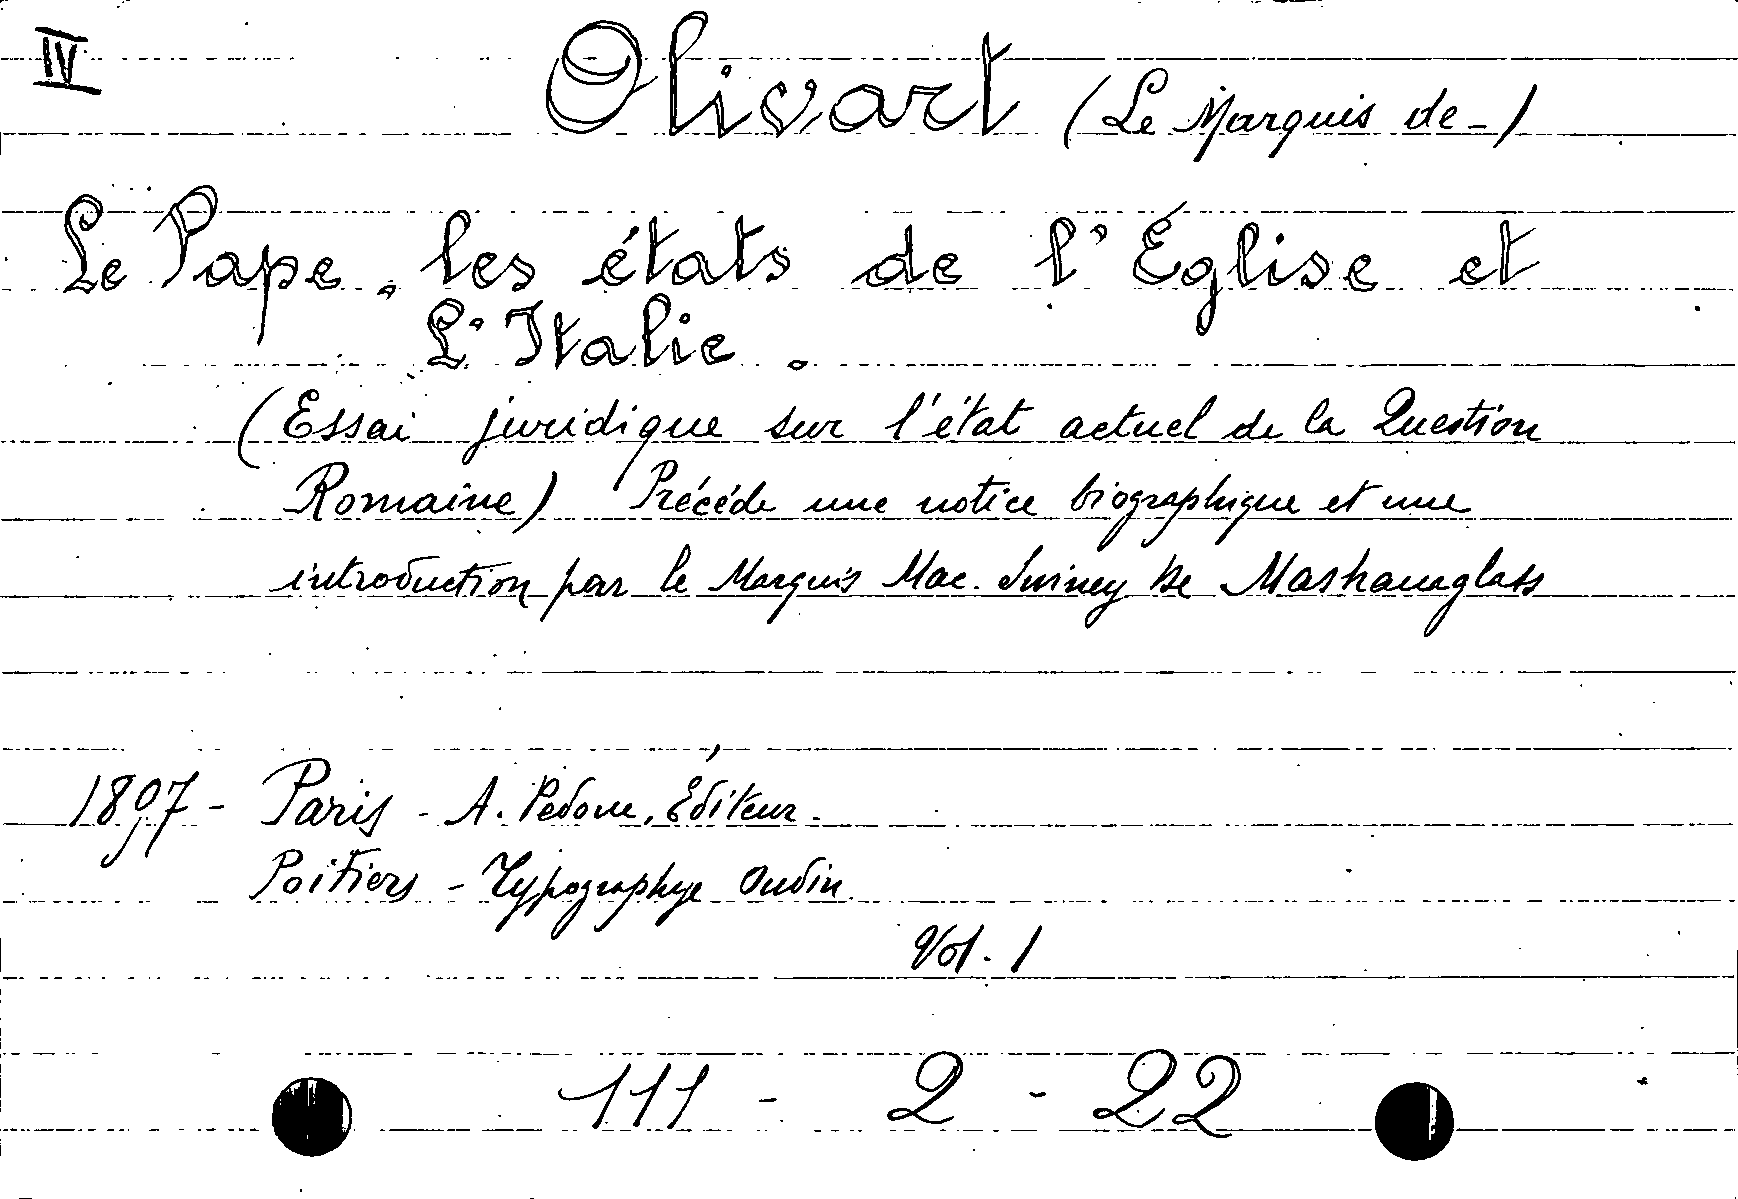 IV
Olivart (Le Marquis de-)
Le Pape, les états de l'Église et
L'Italie.
(Essai juridique sur l'état actuel de la Question
Romaine) Précéde une notice biographique et une
introduction par le Marquis Mac. Swiney De Mashanaglass
1897 - Paris - A. Pedone, Éditeur.
Poitiers - Typographye Oudin.
Vol. 1
111 - 2 - 22